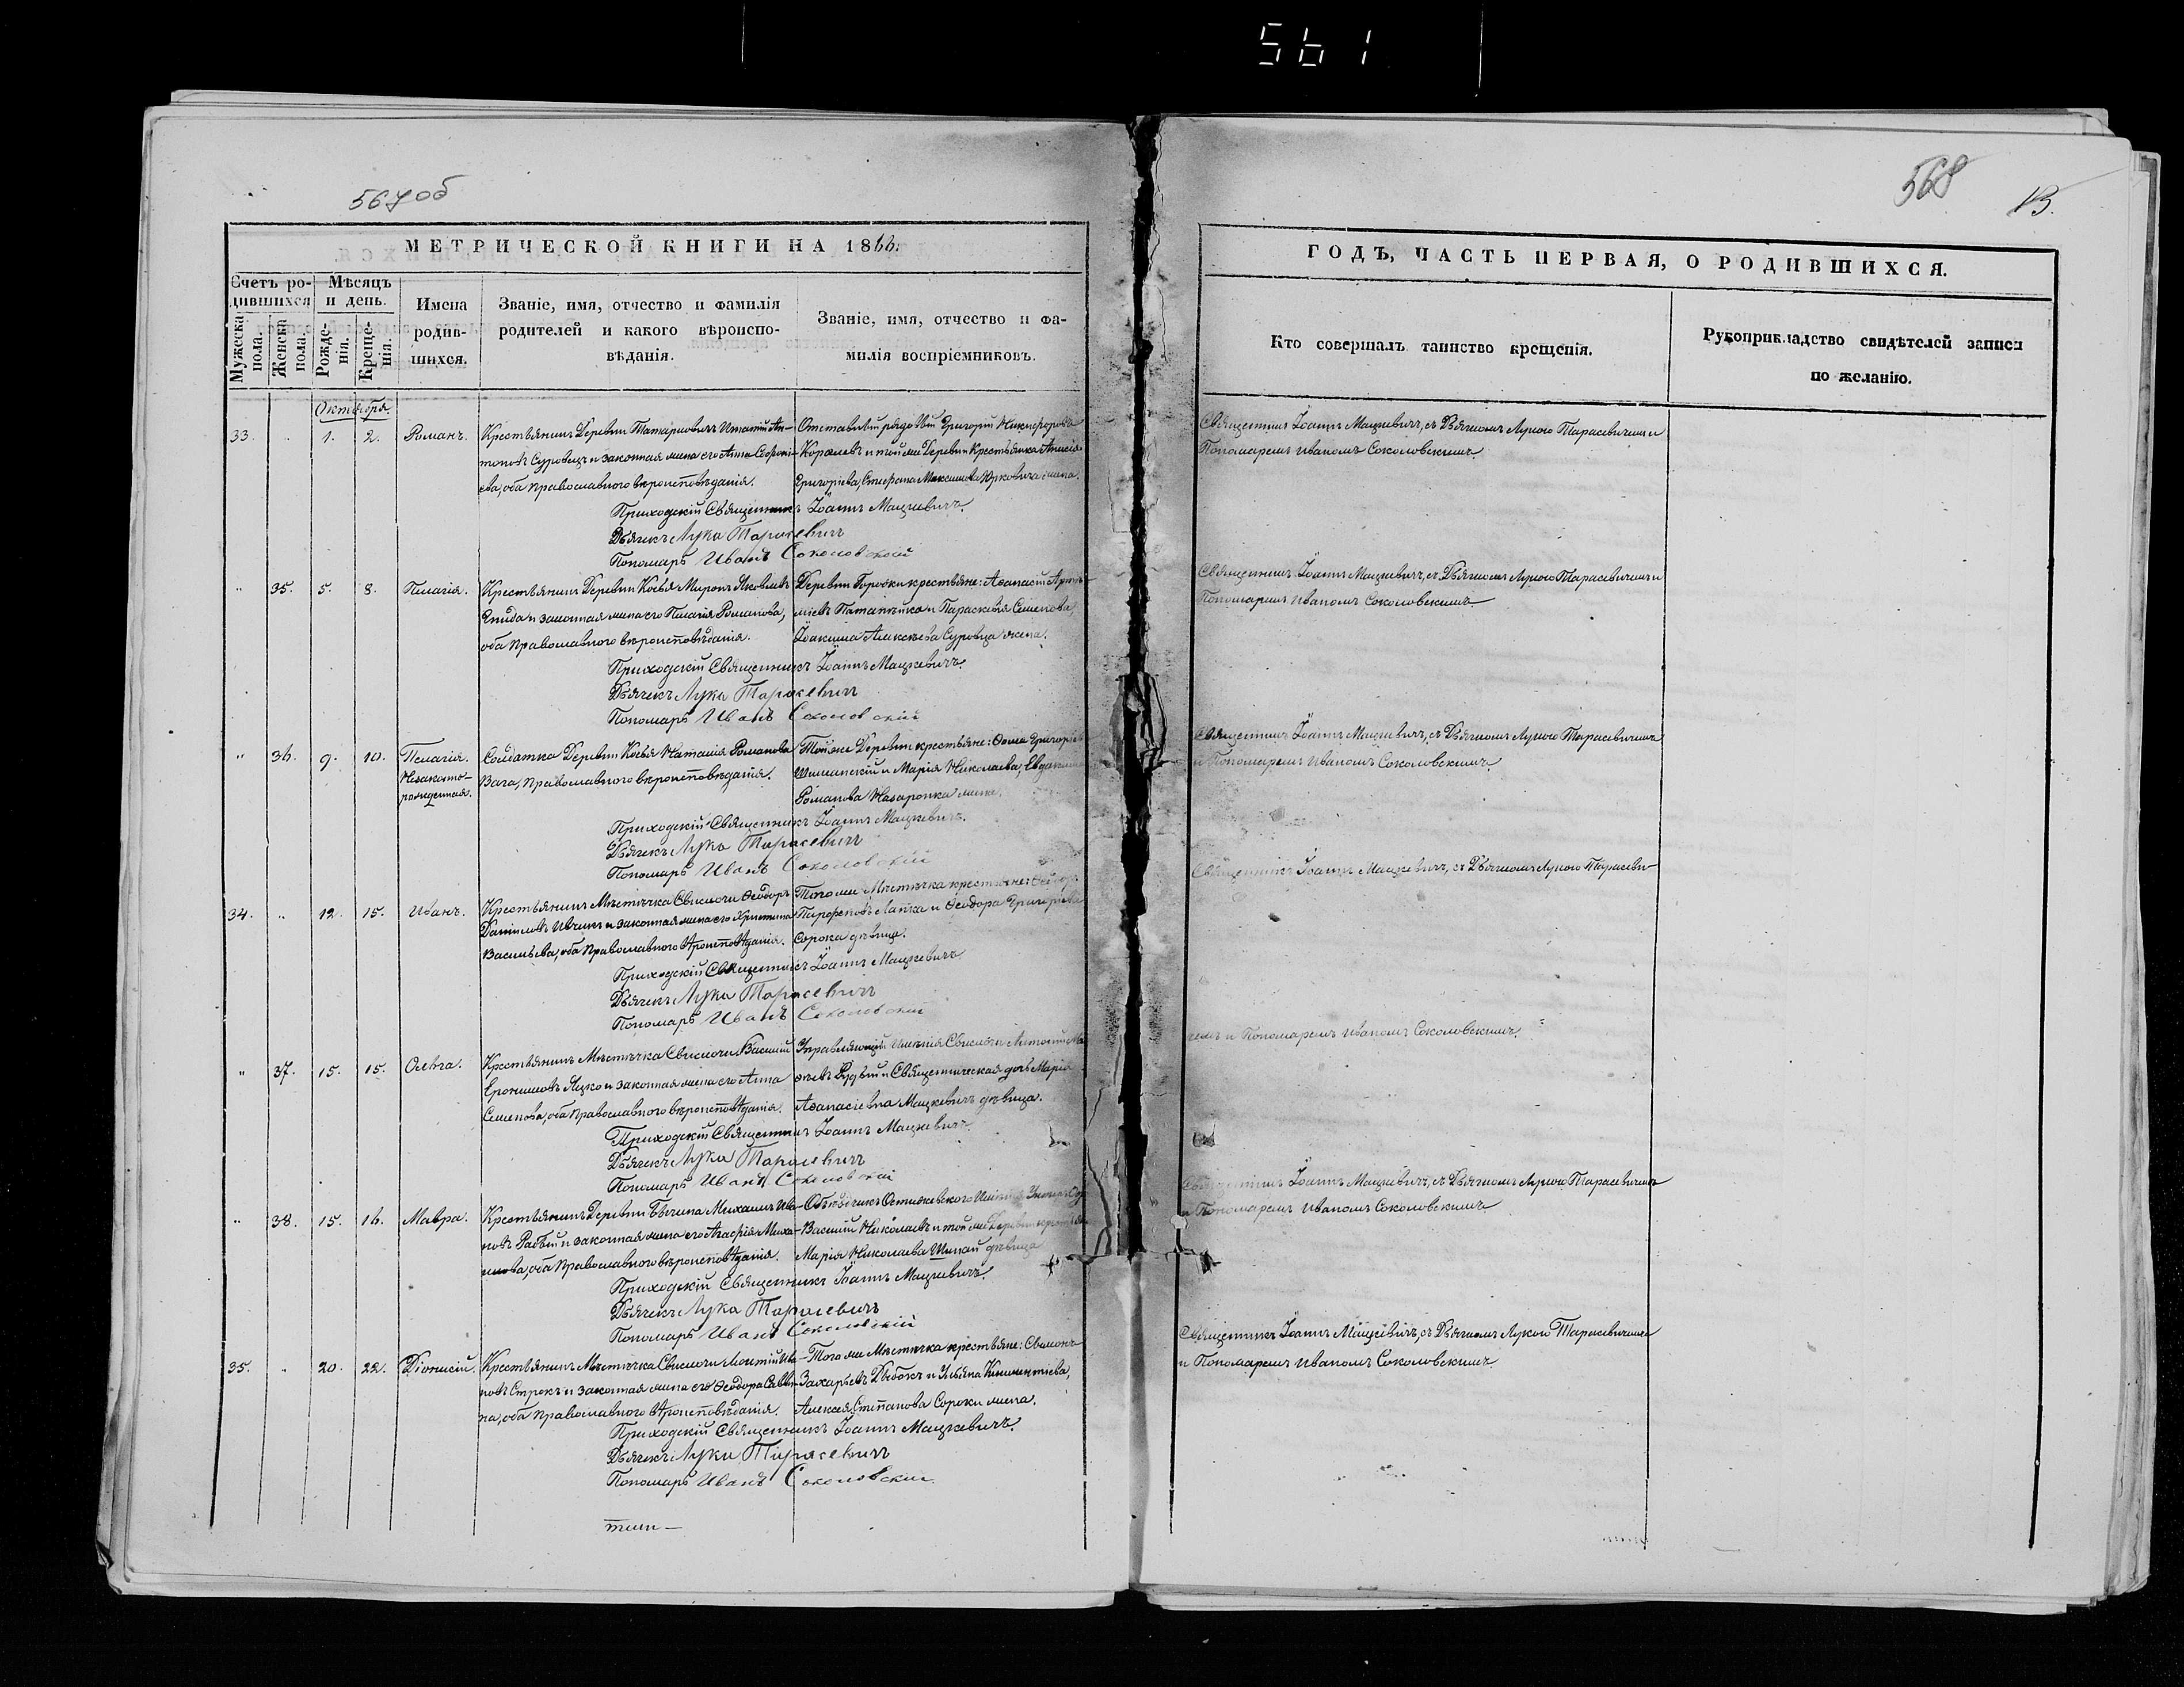 561
567об
568
13.
МЕТРИЧЕСКОЙ КНИГИ НА 1866.
ГОДЪ, ЧАСТЬ ПЕРВАЯ, О РОДИВШИХСЯ.
Счетъ родившихся
Мужеска пола.
Женска пола.
Мѣсяцъ и день.
Рожденія.
Крещенія.
Имена родившихся.
Званіе, имя, отчество и фамилія
родителей и какого вѣроиспо-
вѣданія.
Званіе, имя, отчество и фа-
милія воспріемниковъ.
Кто совершалъ таинство крещенія.
Рукоприкладство свидѣтелей записи
по желанію.
Октября.
33. " 1. 2. Романъ.
Крестьянинъ Деревни Татариовичъ Игнатій Ан-
тоновъ Суровецъ и законная жена его Анна
ева, оба Православного вѣроисповѣданія.
Отставный рядовый Григорій Никифоровъ
Королевъ и той же Деревни Крестьянка
Григоріева, Стефана Максимова Юрковича жена.
Приходскій Священникъ Іоаннъ Мацкевичъ.
Дьячекъ Лука Тарасевичъ
Пономарь Иванъ Соколовскій
Священникъ Іоаннъ Мацкевичъ, съ Дьячкомъ Лукою Тарасевичемъ и
Пономаремъ Иваномъ Соколовскимъ.
" 35. 5. 8. Пелагія.
Крестьянинъ Деревни Косья Миронъ Яковлевъ
и законная жена его Пелагія Романова,
оба Православного вѣроисповѣданія.
Деревни Городки крестьяне: Аѳанасій Артѣ-
міевъ и Параскевія Семенова,
Іоакима Алексѣева Суровца жена.
Приходскій Священникъ Іоаннъ Мацкевичъ.
Дьячекъ Лука Тарасевичъ
Пономарь Иванъ Соколовскій
Священникъ Іоаннъ Мацкевичъ, съ Дьячкомъ Лукою Тарасевичемъ и
Пономаремъ Иваномъ Соколовскимъ
" 36. 9. 10. Пелагія.
Незаконно-
рожденная.
Солдатка Деревни Косья Наталія Романова
Вага, Православного вѣроисповѣданія.
Той же Деревни крестьяне: Ѳома Григорьев
Шиманскій и Марія Николаева,
Романова Назаронка жена.
Приходскій Священникъ Іоаннъ Мацкевичъ.
Дьячекъ Лука Тарасевичъ
Пономарь Иванъ Соколовскій
Священникъ Іоаннъ Мацкевичъ, съ Дьячкомъ Лукою Тарасевичемъ
и Пономаремъ Иваномъ Соколовскимъ.
34. " 12. 15. Иванъ.
Крестьянинъ Мѣстечка Свислочи Ѳеодоръ
Даниловъ и законная жена его Христина
Васильева, оба Православного вѣроисповѣданія.
Того же Мѣстечка крестьяне:
Лапка и Ѳеодора Григорьева
Сорока дѣвица.
Приходскій Священникъ Іоаннъ Мацкевичъ
Дьячекъ Лука Тарасевичъ
Пономарь Иванъ Соколовскій
Священникъ Іоаннъ Мацкевичъ, съ Дьячкомъ Лукою Тарасеви-
чемъ и Пономаремъ Иваномъ Соколовскимъ.
" 37. 15. 15. Ольга.
Крестьянинъ Мѣстечка Свислочи Василій
Еронимовъ Яцко и законная жена его Анна
Семенова, оба Православного вѣроисповѣданія.
Управляющій имѣнія Свислочи Антоній
и Священническая дочь Марія
Аѳанасіевна Мацкевичъ дѣвица.
Приходскій Священникъ Іоаннъ Мацкевичъ.
Дьячекъ Лука Тарасевичъ
Пономарь Иванъ Соколовскій
" 38. 15. 16. Мавра.
Крестьянинъ Деревни Бычина Михаилъ Ива-
новъ Рабый и законная жена его Агафія Миха-
илова, оба Православного вѣроисповѣданія.
Василій Николаевъ и той же Деревни
Марія Николаева Шпай дѣвица
Приходскій Священникъ Іоаннъ Мацкевичъ.
Дьячекъ Лука Тарасевичъ
Пономарь Иванъ Соколовскій
Священникъ Іоаннъ Мацкевичъ, съ Дьячкомъ Лукою Тарасевичемъ
и Пономаремъ Иваномъ Соколовскимъ
35. " 20. 22. Діонисій.
Крестьянинъ Мѣстечка Свислочи Леонтій Ива-
новъ Строкъ и законная жена его Ѳеодора Савви-
на, оба Православного вѣроисповѣданія.
Того же Мѣстечка крестьяне:
Захарьевъ и Ульяна Климентіева,
Алексѣя Степанова Сороки жена.
Приходскій Священникъ Іоаннъ Мацкевичъ.
Дьячекъ Лука Тарасевичъ
Пономарь Иванъ Соколовскій
Священникъ Іоаннъ Мацкевичъ, съ Дьячкомъ Лукою Тарасевичемъ
и Пономаремъ Иваномъ Соколовскимъ